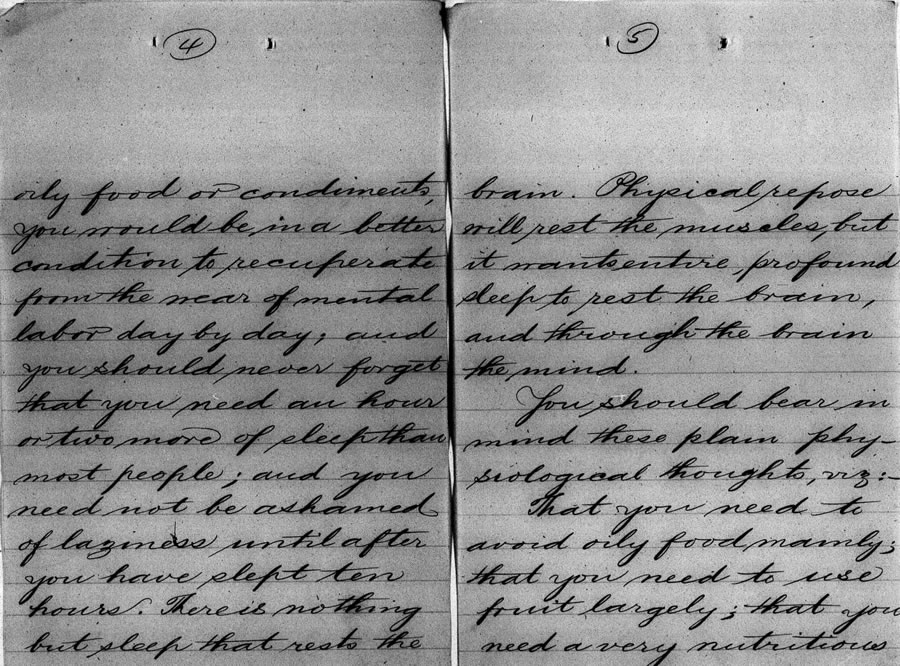 4
oily food or condiments,
you would be, in a better
condition to recuperate
from the wear of mental
labor day by day; and
you should never forget
that you need an hour
or two more of sleep than
most people; and you
need not be ashamed
of laziness until after
you have slept ten
hours. There is nothing
but sleep that rests the
5
brain. Physical repose
will rest the muscles, but
it wants entire, profound
sleep to rest the brain,
and through the brain
the mind.
You should bear in
mind these plain phy-
siological thoughts, viz:-
That you need to
avoid oily food mainly;
that you need to use
fruit largely; that you
need a very nutritious